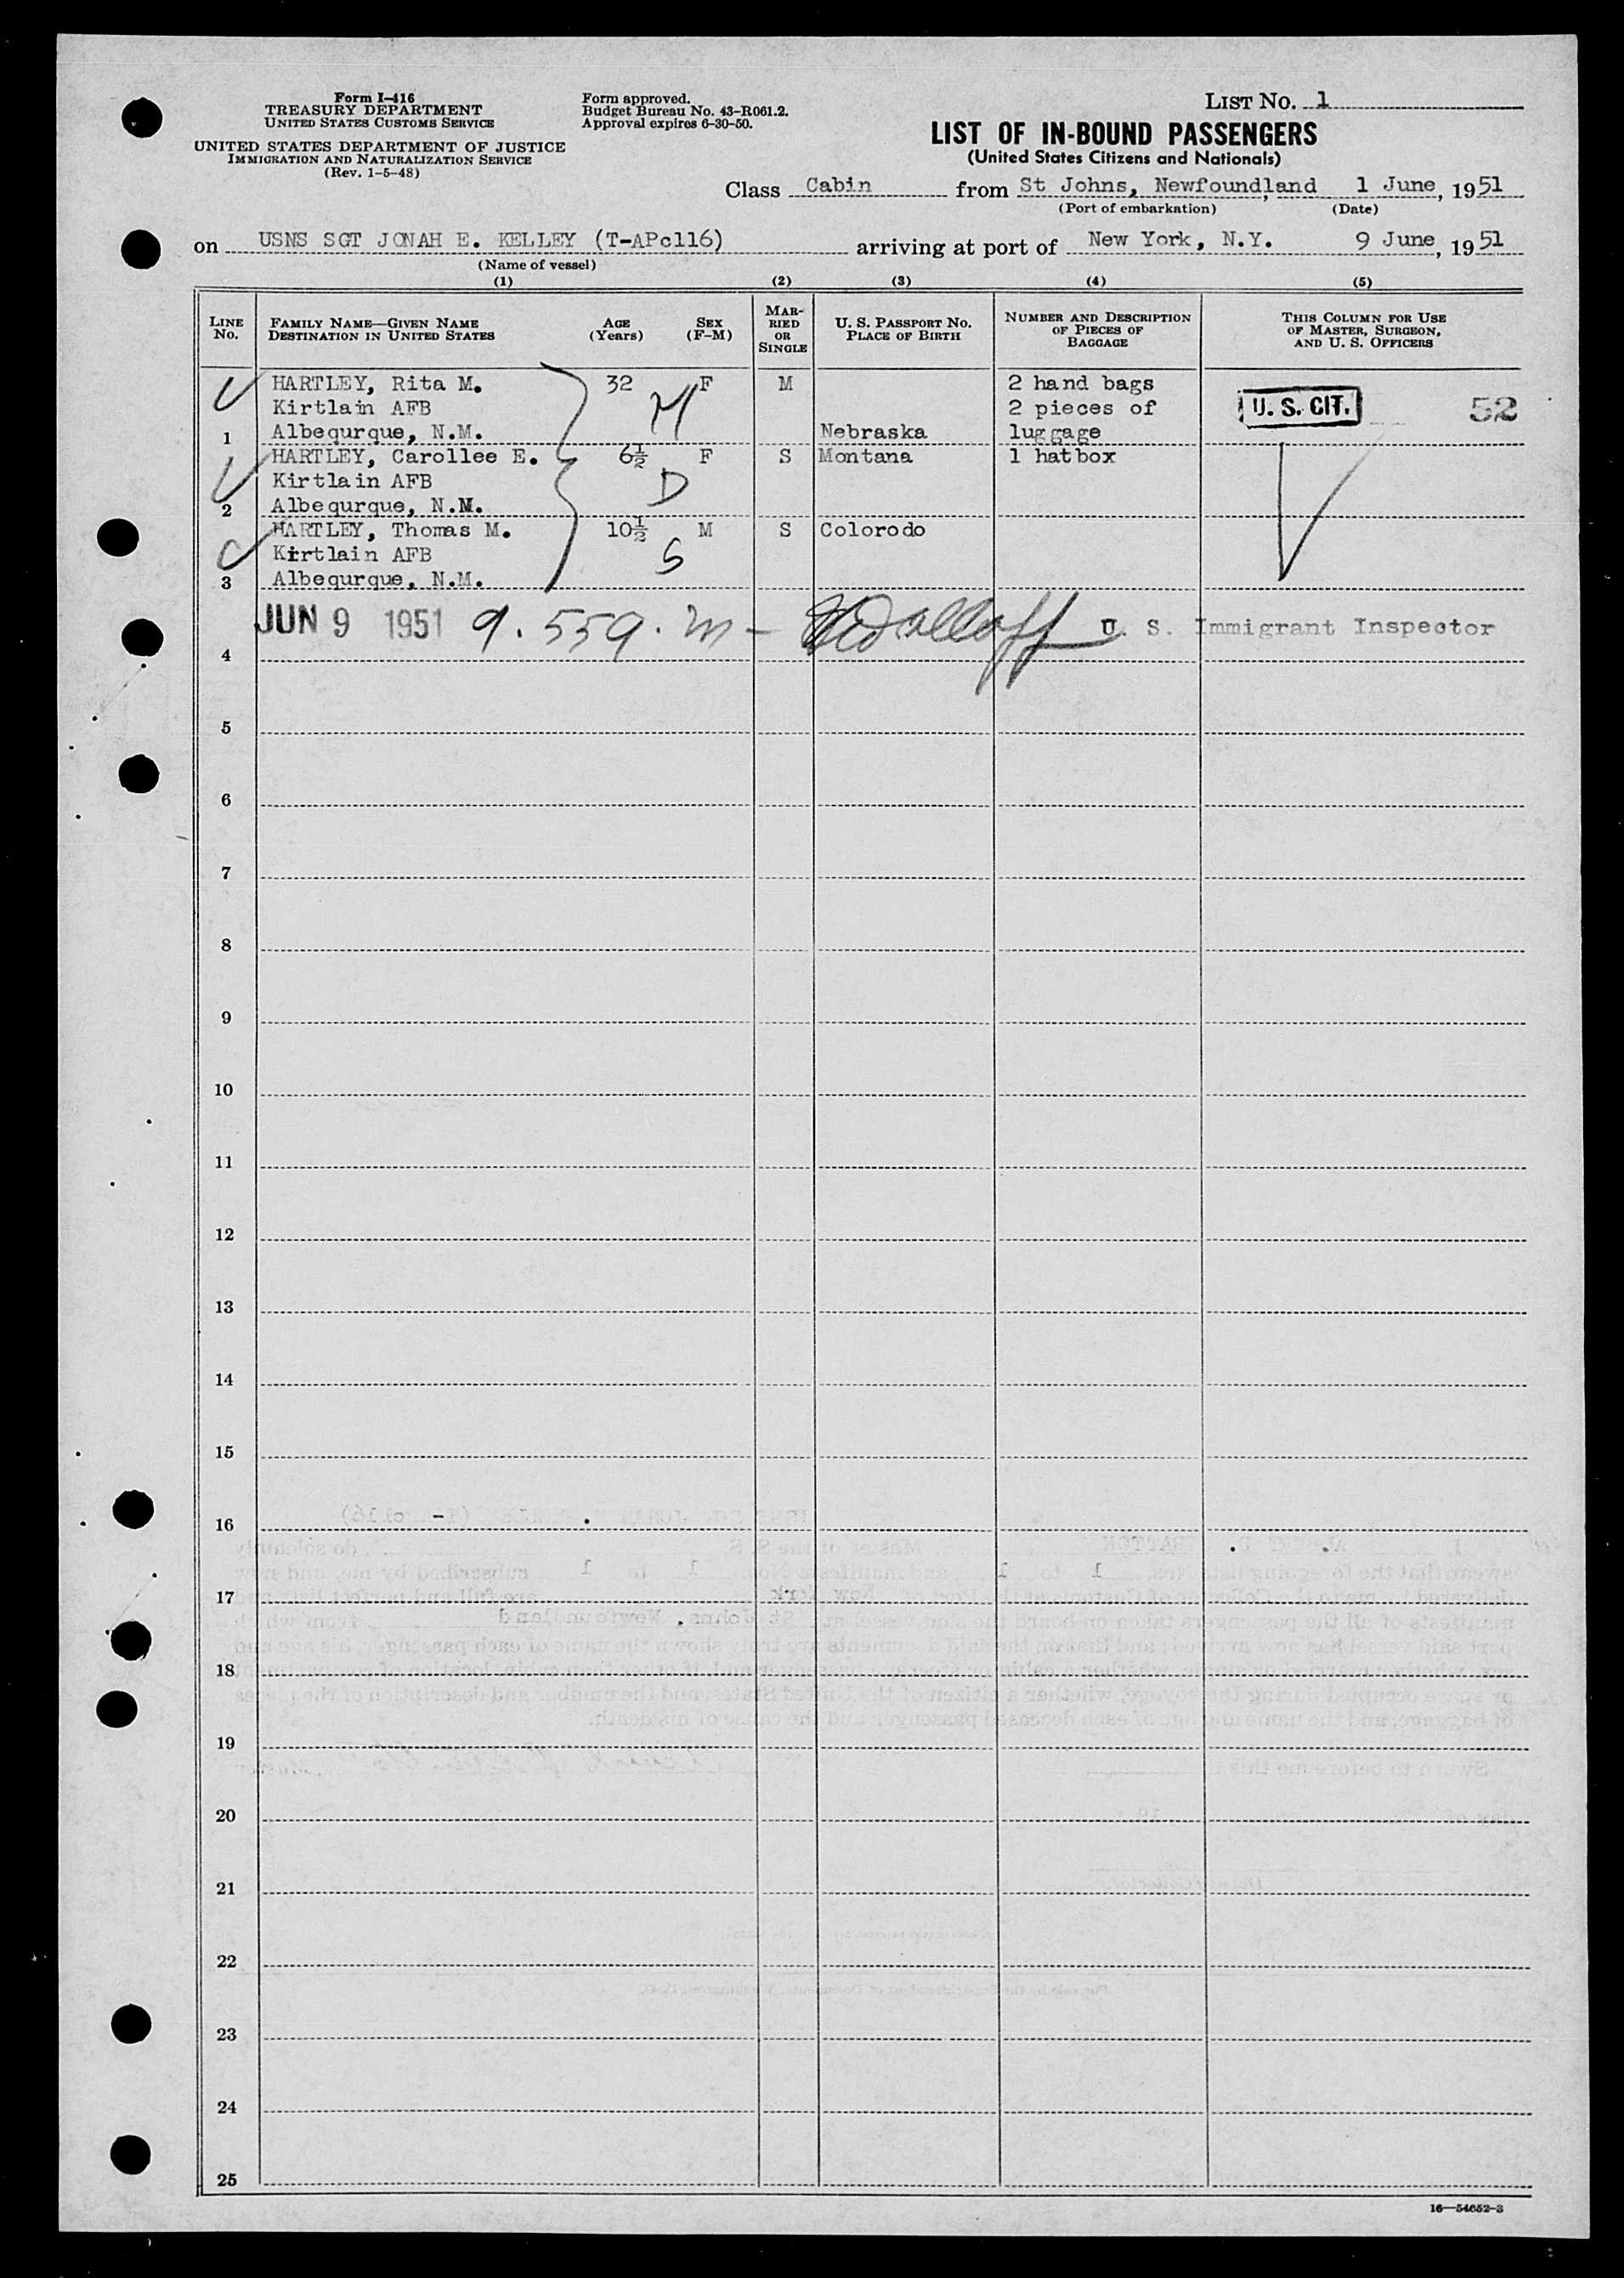 Form I-416
TREASURY DEPARTMENT
UNITED STATES CUSTOMS SERVICE
UNITED STATES DEPARTMENT OF JUSTICE
IMMIGRATION AND NATURALIZATION SERVICE
(Rev. 1-5-48)
Form approved.
Budget Bureau No. 43-R061.2.
Approval expires 6-30-50.
LIST No. 1
LIST OF IN-BOUND PASSENGERS
(United States Citizens and Nationals)
Class Cabin from St Johns, Newfoundland, 1 June, 1951
(Port of embarkation) (Date)
on USNS SGT JONAH E. KELLEY (T-APc116) arriving at port of New York, N.Y. 9 June, 1951
(Name of vessel)
(1) (2) (3) (4) (5)
LINE No.
FAMILY NAME—GIVEN NAME
DESTINATION IN UNITED STATES
AGE (Years)
SEX (F-M)
MARRIED OR SINGLE
U. S. PASSPORT No.
PLACE OF BIRTH
NUMBER AND DESCRIPTION OF PIECES OF BAGGAGE
THIS COLUMN FOR USE OF MASTER, SURGEON, AND U. S. OFFICERS
HARTLEY, Rita M. 32 F M 2 hand bags
Kirtlain AFB M 2 pieces of U. S. CIT. 52
1 Albequrque, N.M. Nebraska luggage
HARTLEY, Carollee E. 6½ F S Montana 1 hatbox
Kirtlain AFB D
2 Albequrque, N.M.
HARTLEY, Thomas M. 10½ M S Colorodo
Kirtlain AFB S
3 Albequrque, N.M.
JUN 9 1951 9.55 a.m - U. S. Immigrant Inspector
4
5
6
7
8
9
10
11
12
13
14
15
16
17
18
19
20
21
22
23
24
25
16—54652-3